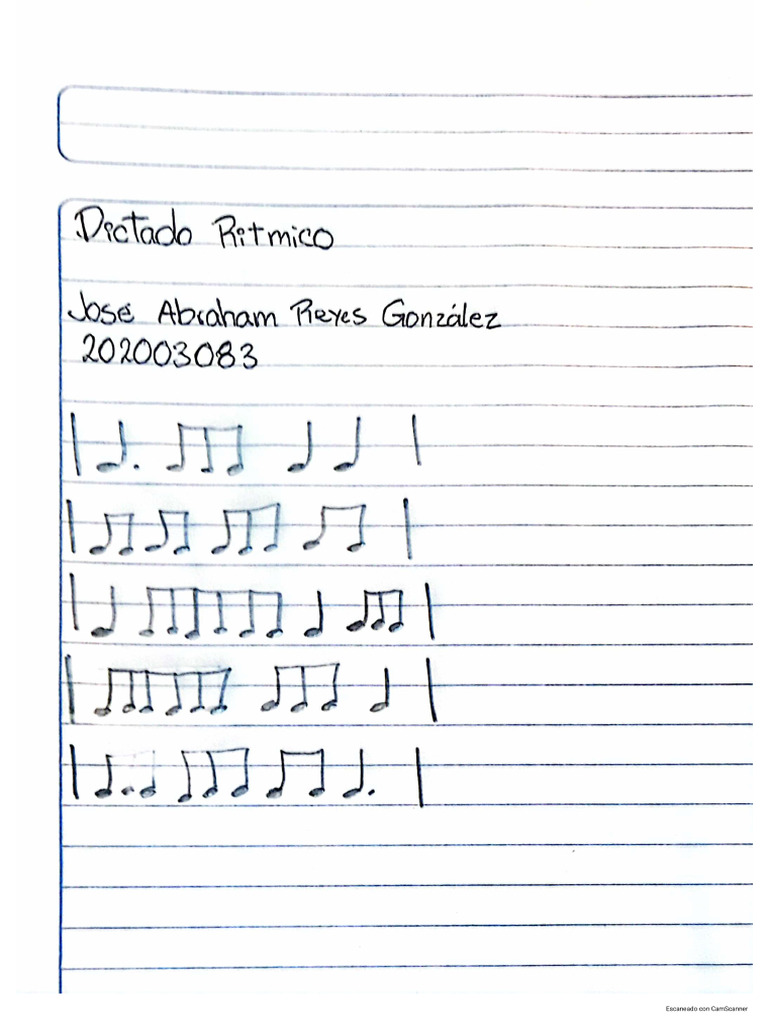 Dictado Ritmico
José Abraham Reyes González
202003083
Escaneado con CamScanner